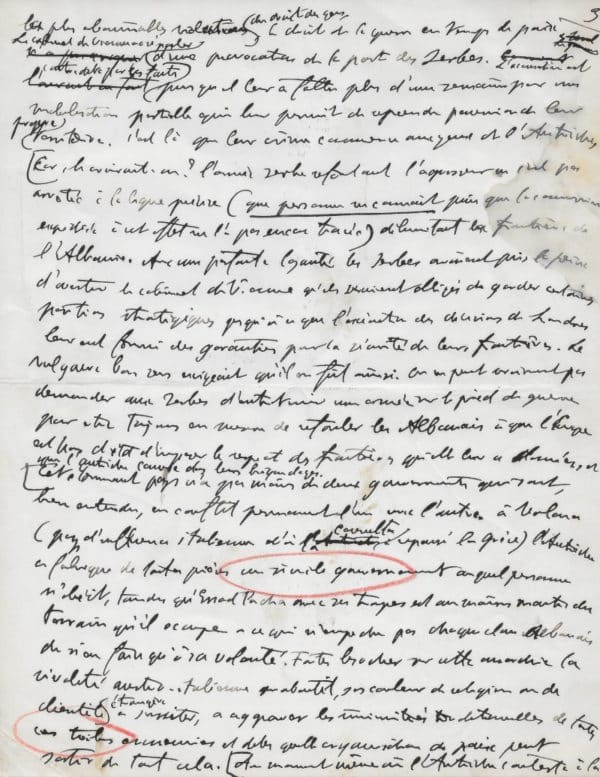 3
les plus abominables violations du droit des gens
et droit de la guerre en temps de paix
Le cabinet de Vienne ose parler
d'une provocation de la part des Serbes.
L'accusation est
contredite par les faits
puisqu'il leur a fallu plus d'un mois pour une
mobilisation partielle qui leur permit de reprendre possession de leur
propre
territoire. C'est là que leur crime commence aux yeux de l'Autriche
Car, le croirait-on? l'armée serbe refoulant l'agresseur ne s'est pas
arrêtée à la ligne précise (que personne ne connait puisque la commission
expédiée à cet effet ne l'a pas encore tracée) délimitant les frontières de
l'Albanie. Avec une parfaite loyauté les Serbes avaient pris la peine
d'avertir le cabinet de Vienne qu'ils seraient obligés de garder certaines
positions stratégiques jusqu'à ce que l'exécution des décisions de Londres
leur eut fourni des garanties pour la sécurité de leurs frontières. Le
vulgaire bon sens exigeait qu'il en fût ainsi. On ne peut vraiment pas
demander aux Serbes d'entretenir une armée sur le pied de guerre
pour être toujours en mesure de refouler les Albanais à qui l'Europe
est hors d'état d'imposer le respect des frontières qu'elle leur a données, et
que l'Autriche
Cet étonnant pays n'a pas moins de deux gouvernements qui sont,
bien entendu, en conflit permanent l'un avec l'autre. à Valona
(pays d'influence italienne d'où l'Autriche
a fabriqué de toutes pièces un simili gouvernement auquel personne
n'obéit, tandis qu'Essad Pacha avec ses troupes est au moins maitre du
terrain qu'il occupe ce qui n'empêche pas chaque clan albanais
de n'en faire qu'à sa volonté. Faites brocher sur cette anarchie la
rivalité austro-italienne qui aboutit, sous couleur de religion ou de
clientèle étrangère à susciter, à aggraver les inimitiés traditionnelles de toutes
ces tribus ennemies et dites quelle organisation de paix peut
sortir de tout cela. Au moment même où l'Autriche conteste à la